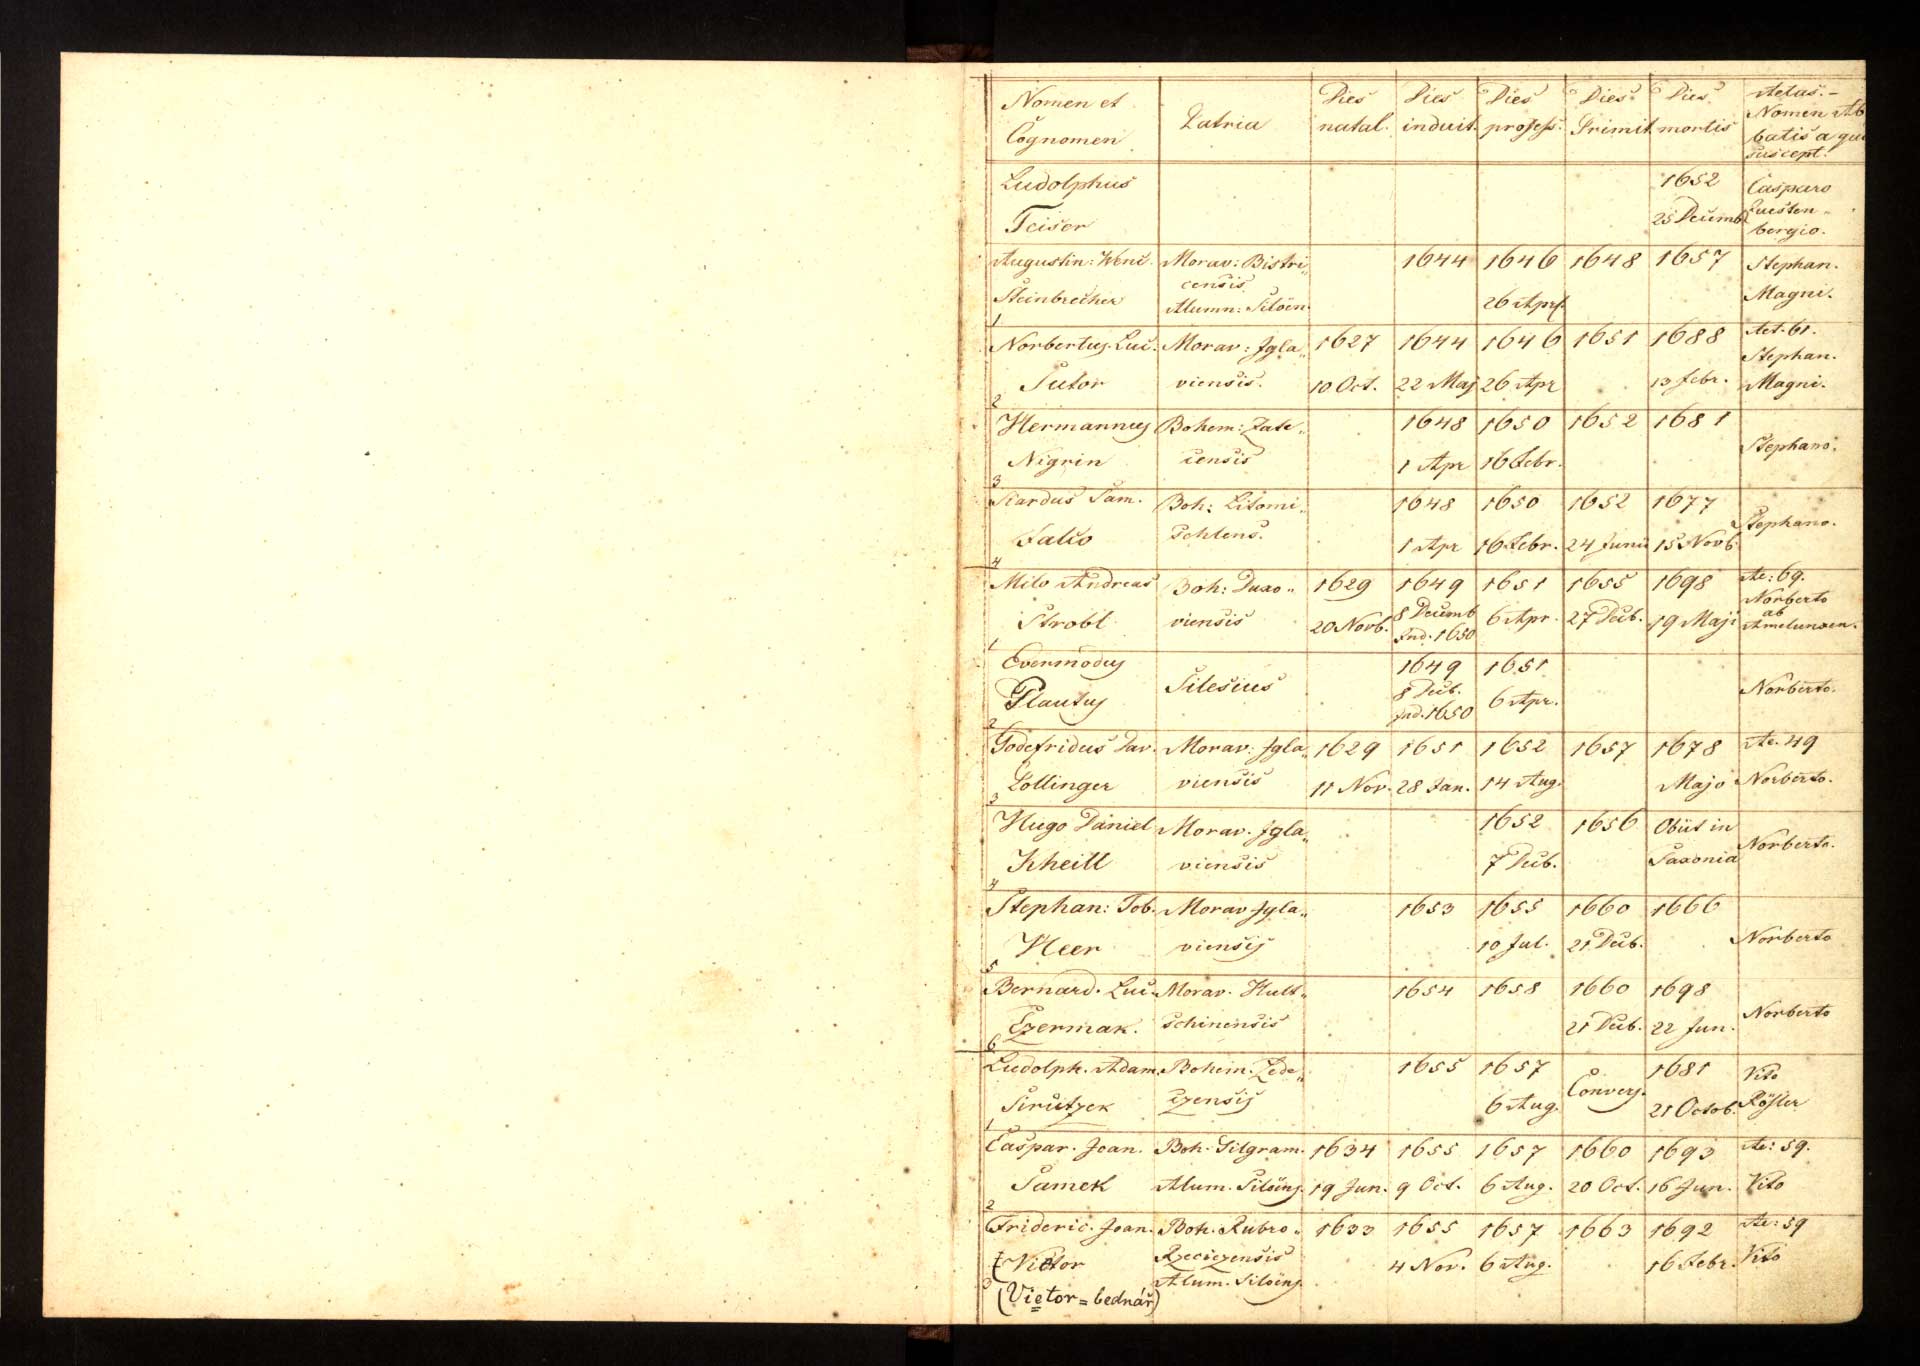 Nomen et
Cognomen
Patria
Dies
natal.
Dies
induit.
Dies
profess.
Dies
Primit.
Dies
mortis
Aetas.-
Nomen Ab
batis a quo
suscept.
Ludolphus
Teiser
1652
25 Decemb
Casparo
Questen-
bergio.
Augustin: Wenc.
Steinbrecher
Morav: Bistri„
censis
Alumn: Siloën.
1644
1646
26 Apr.
1648
1657
Stephan.
Magni.
1
Norbertus. Luc.
Sutor
Morav: Jgla„
viensis.
1627
10 Oct.
1644
22 Maj
1646
26 Apr
1651
1688
13 febr.
Aet. 61.
Stephan.
Magni.
2
Hermannus
Nigrin
Bohem: Zate„
censis
1648
1 Apr
1650
16 Febr.
1652
1681
Stephano.
3
Isardus Sam.
Falco
Boh: Litomi„
schlens.
1648
1 Apr
1650
16 Febr.
1652
24 Junii
1677
15 Novb
Stephano.
4
Milo Andreas
Strobl
Boh: Duxo„
viensis
1629
20 Novb.
1649
8 Decemb
Ind. 1650
1651
6 Apr.
1655
27 Decb.
1698
19 Maji
Ae: 69.
Norberto
ab
Amelunxen.
1
Evermodus
Plautus
Silesius
1649
8 Decb.
Ind. 1650
1651
6 Apr.
Norberto.
2
Godefridus Dav.
Lollinger
Morav: Jgla„
viensis
1629
11 Nov.
1651
28 Jan.
1652
14 Aug.
1657
1678
Majo
Ae. 49
Norberto.
3
Hugo Daniel
Kheill
Morav. Jgla„
viensis
1652
7 Decb.
1656
Obiit in
Saxonia
Norberto.
4
Stephan: Tob.
Heer
Morav Jgla„
viensis
1653
1655
10 Jul.
1660
21 Decb.
1666
Norberto
5
Bernard. Luc.
Czermak.
Morav. Hult„
schinensis
1654
1658
1660
21 Decb.
1698
22 Jun.
Norberto
6
Ludolph. Adam.
Sirutzek
Bohem. Zede„
czensis
1655
1657
6 Aug.
Convers.
1681
21 Octob.
Vito
Rösler
1
Caspar. Joan.
Samek
Boh. Pilgram.
Alum. Siloëns.
1634
19 Jun.
1655
9 Oct.
1657
6 Aug.
1660
20 Oct.
1693
16 Jun.
Ae: 59.
Vito
2
Frideric. Joan.
(Victor
Boh. Rubro„
Rzeciczensis
Alum. Siloëns.
1633
1655
4 Nov.
1657
6 Aug.
1663
1692
16 Febr.
Ae: 59
Vito
3
(Vietor = bednář)